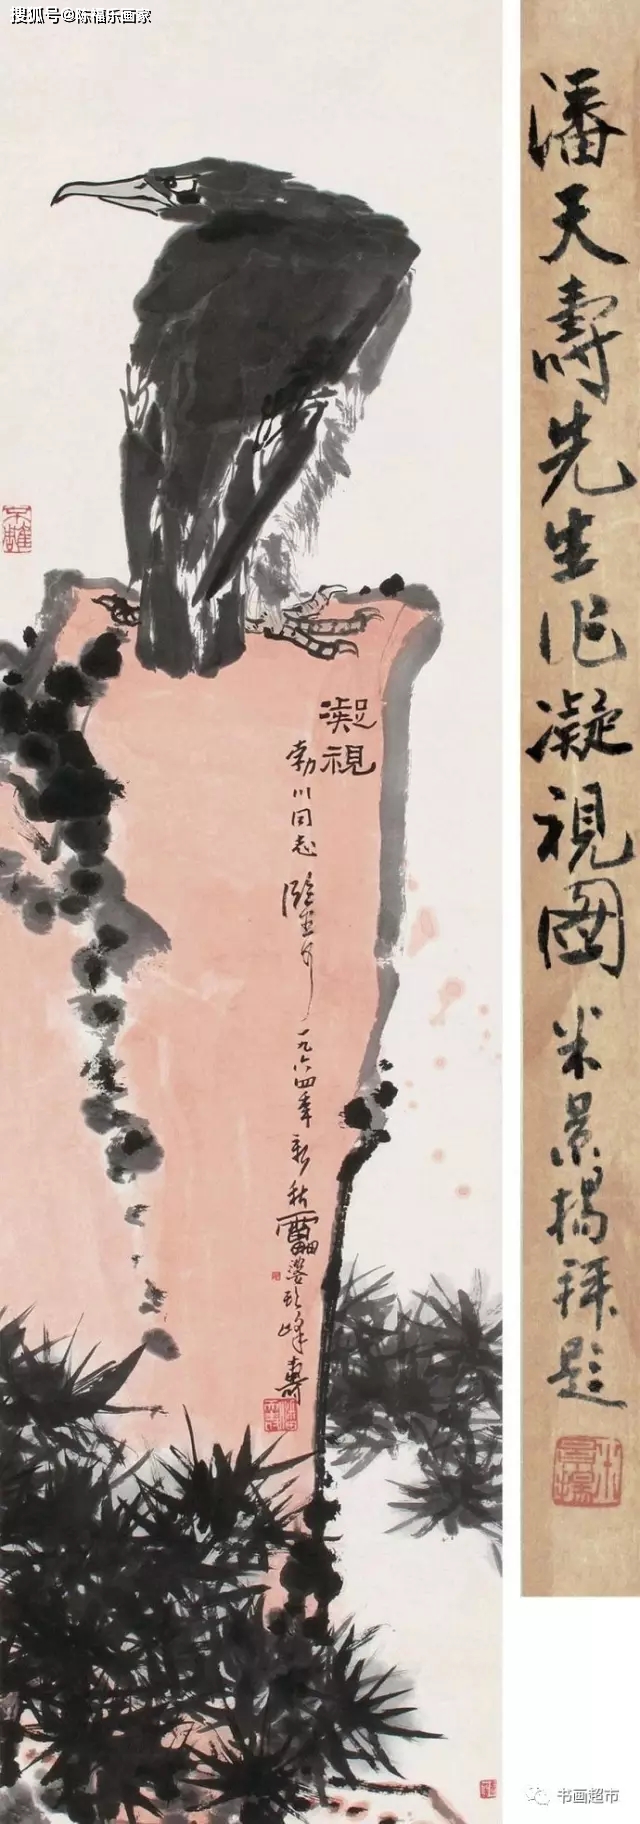 搜狐号@陈福乐画家
凝視
勃川同志 正 一九六四年新秋雷婆頭峰壽
不雕
潘天壽先生作凝視圖 米景揚拜題
米景揚
书画超市